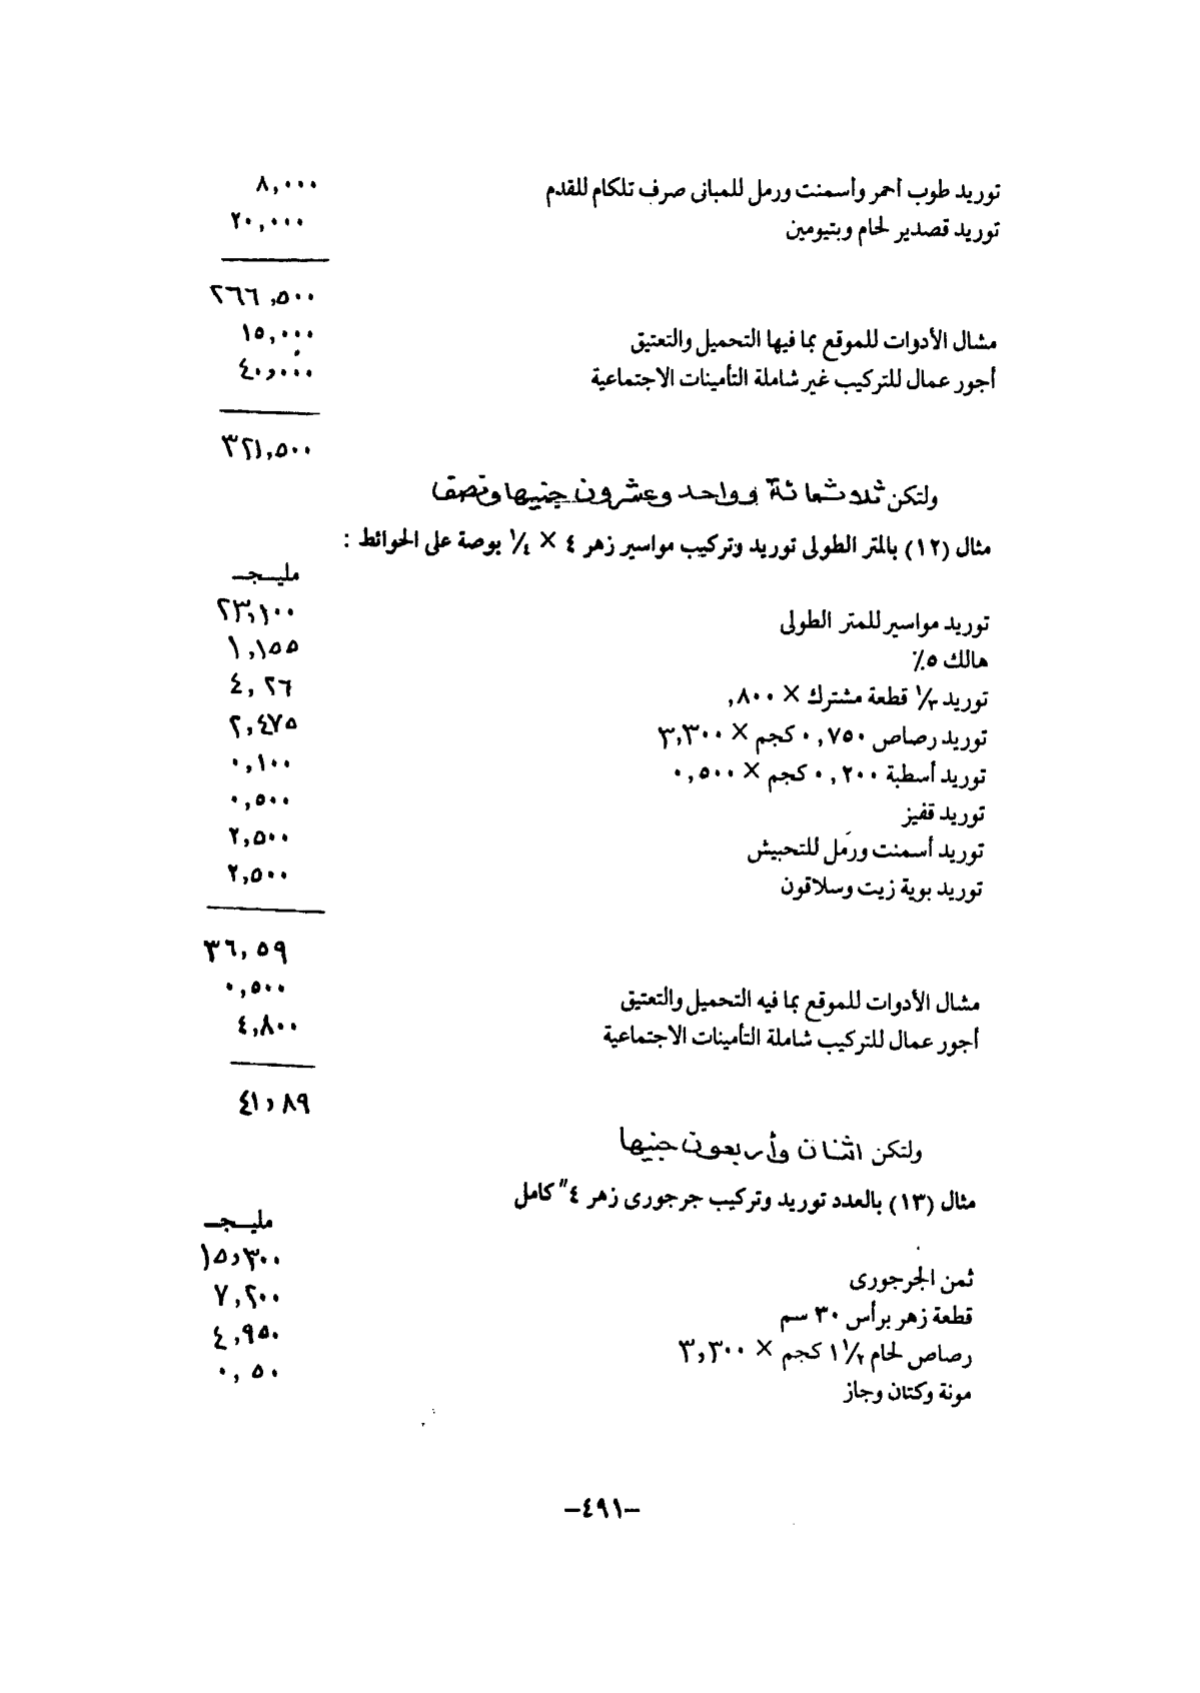 توريد طوب أحمر وأسمنت ورمل للمبانى صرف تلكام للقدم ٨,٠٠٠
توريد قصدير لحام وبتيومين ٢٠,٠٠٠
٢٦٦,٥٠٠
مشال الأدوات للموقع بما فيها التحميل والتعتيق ١٥,٠٠٠
أجور عمال للتركيب غير شاملة التأمينات الاجتماعية ٤٠,٠٠٠
٣٢١,٥٠٠
ولتكن ثلاثمائة وواحد وعشرون جنيها ونصف
مثال (١٢) بالمتر الطولى توريد وتركيب مواسير زهر ٤ × ¼ بوصة على الحوائط :
مليـجـ
توريد مواسير للمتر الطولى ٢٣,١٠٠
هالك ٥٪ ١,١٥٥
توريد ⅓ قطعة مشترك × ٨٠٠, ٤,٢٦
توريد رصاص ٠,٧٥٠ كجم × ٣,٣٠٠ ٢,٤٧٥
توريد أسطبة ٠,٢٠٠ كجم × ٠,٥٠٠ ٠,١٠٠
توريد قفيز ٠,٥٠٠
توريد أسمنت ورمل للتحبيش ٢,٥٠٠
توريد بوية زيت وسلاقون ٢,٥٠٠
٣٦,٥٩
مشال الأدوات للموقع بما فيه التحميل والتعتيق ٠,٥٠٠
أجور عمال للتركيب شاملة التأمينات الاجتماعية ٤,٨٠٠
٤١,٨٩
ولتكن اثنان وأربعون جنيها
مثال (١٣) بالعدد توريد وتركيب جرجورى زهر ٤" كامل
مليـجـ
ثمن الجرجورى ١٥,٣٠٠
قطعة زهر برأس ٣٠ سم ٧,٢٠٠
رصاص لحام ١½ كجم × ٣,٣٠٠ ٤,٩٥٠
مونة وكتان وجاز ٠,٥٠
–٤٩١–